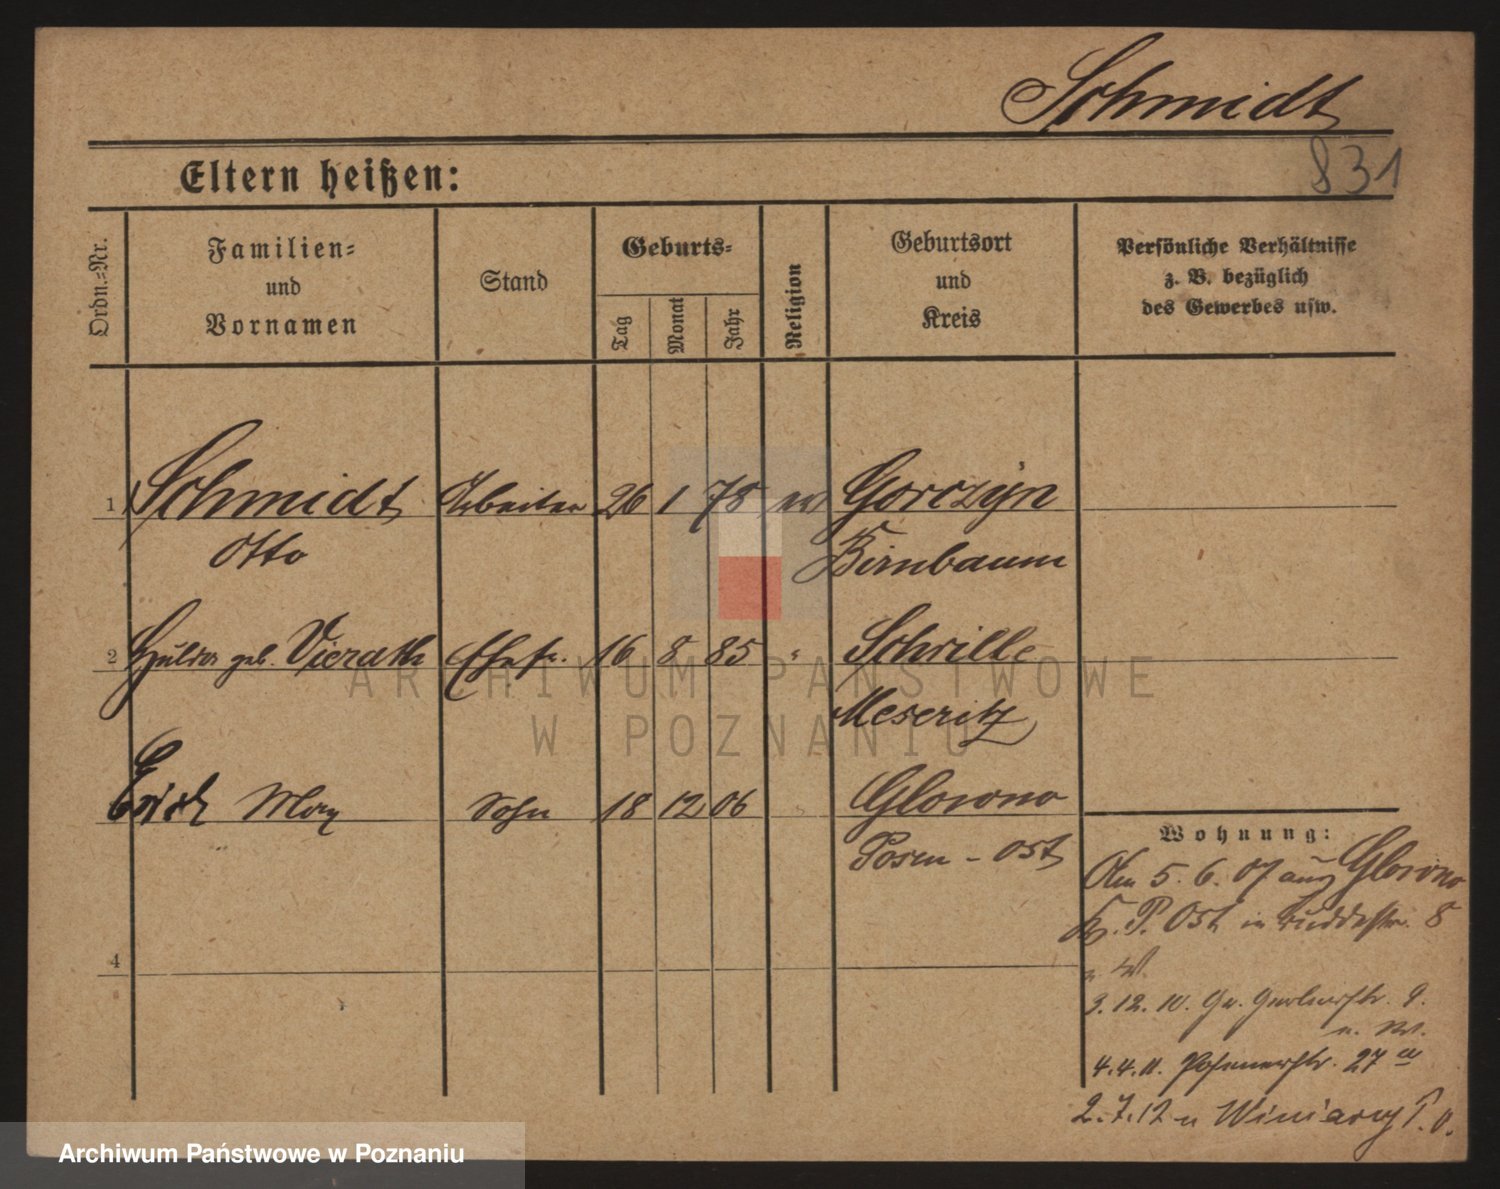 Schmidt
831
Eltern heißen:
Ordn.-Nr.
Familien-
und
Vornamen
Stand
Geburts-
Tag
Monat
Jahr
Religion
Geburtsort
und
Kreis
Persönliche Verhältnisse
z. B. bezüglich
des Gewerbes usw.
1 Schmidt Arbeiter 26 1 78 ev Gorczyn
Otto Birnbaum
2 Hulda geb. Vierath Ehefr. 16 8 85 " Schrille
Meseritz
Erich Max Sohn 18 12 06 Glowno
Posen - Ost
4
Wohnung:
Am 5. 6. 07 aus Glowno
Kr. P. Ost in 8
n. W.
3. 12. 10. Gr. Gerberstr. 9.
n. W.
4. 4. 11. Posenerstr. 27
2. 7. 12 n Winiary P. O.
ARCHIWUM PAŃSTWOWE
W POZNANIU
Archiwum Państwowe w Poznaniu